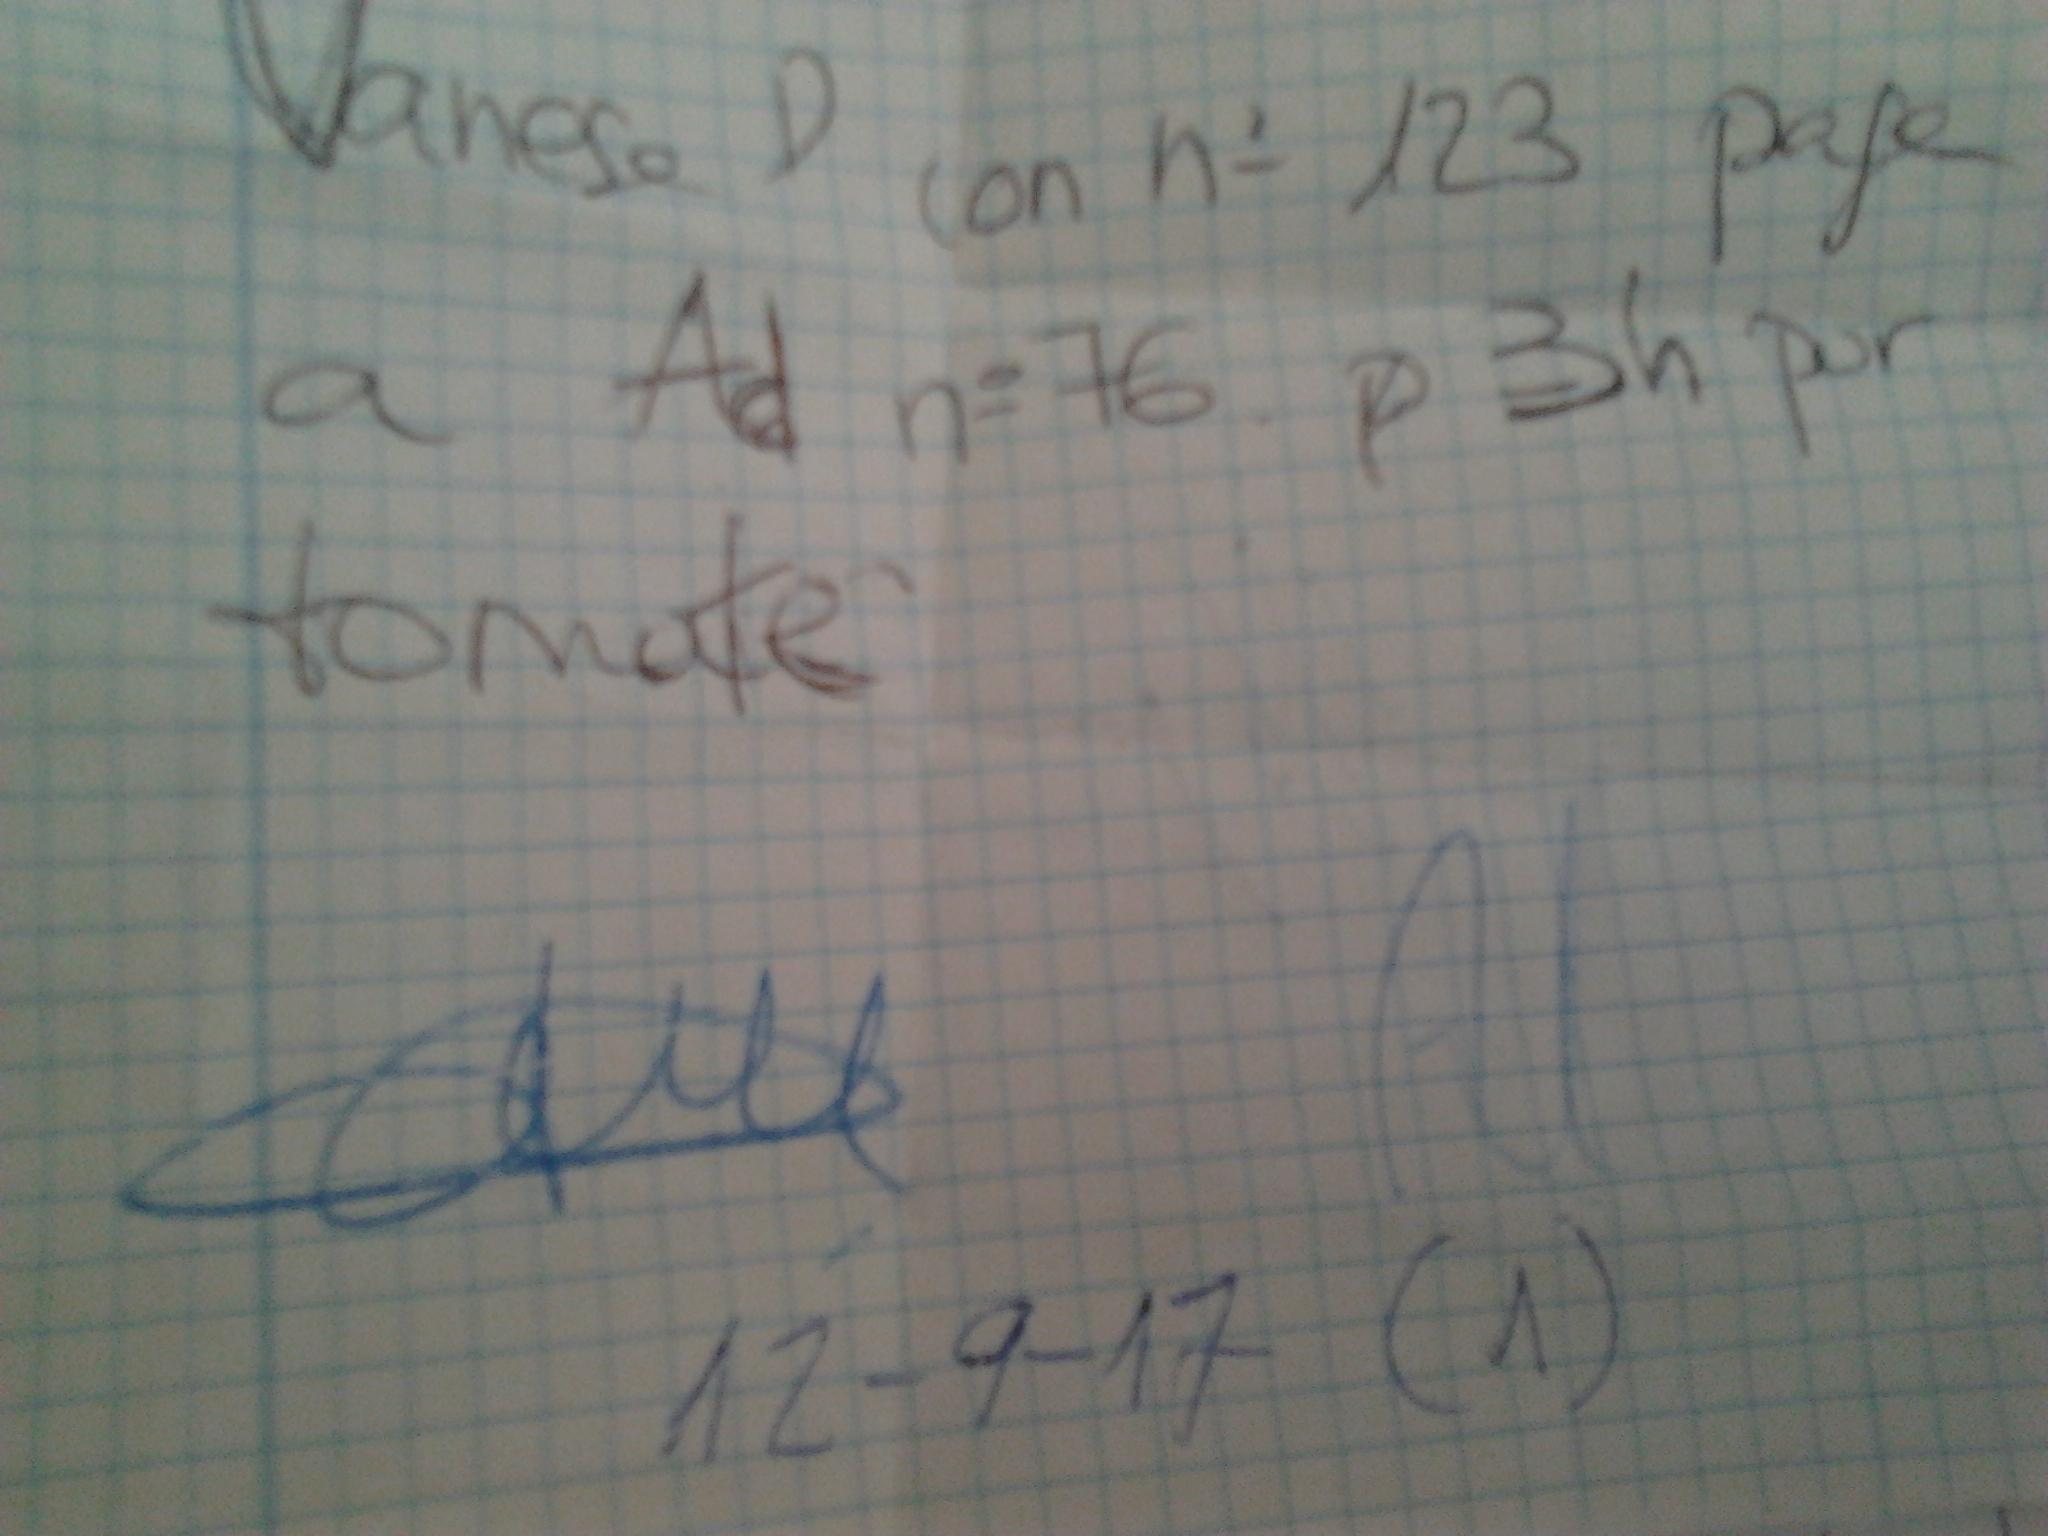 Vanesa D con nº 123 paga
a Ad nº 76 p 3h por
tomate
12-9-17 (1)